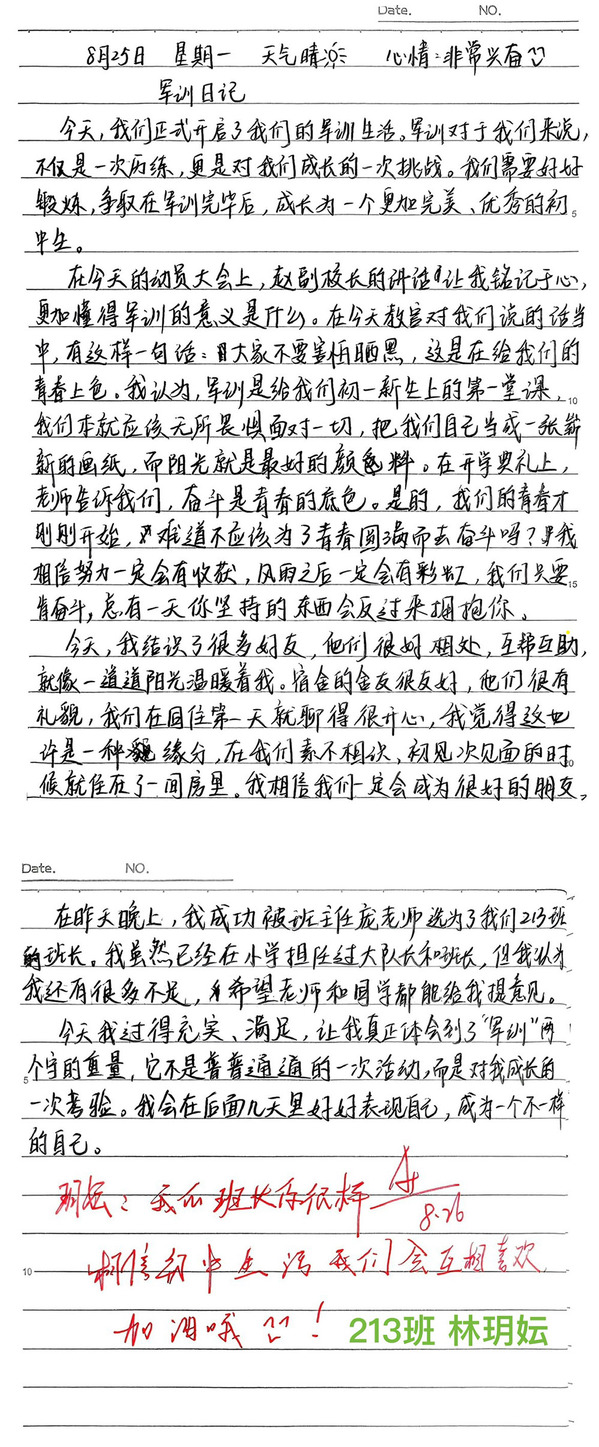 Date. NO.
8月25日 星期一 天气晴 心情:非常兴奋
军训日记
今天,我们正式开启了我们的军训生活。军训对于我们来说,
不仅是一次历练,更是对我们成长的一次挑战。我们需要好好
锻炼,争取在军训完毕后,成长为一个更加完美、优秀的初
5
中生。
在今天的动员大会上,赵副校长的讲话让我铭记于心,
更加懂得军训的意义是什么。在今天教官对我们说的话当
中,有这样一句话:大家不要害怕晒黑,这是在给我们的
青春上色。我认为,军训是给我们初一新生上的第一堂课,
10
我们本就应该无所畏惧面对一切,把我们自己当成一张崭
新的画纸,而阳光就是最好的颜料。在开学典礼上,
老师告诉我们,奋斗是青春的底色。是的,我们的青春才
刚刚开始,难道不应该为了青春圆满而去奋斗吗?我
相信努力一定会有收获,风雨之后一定会有彩虹,我们只要
15
肯奋斗,总有一天你坚持的东西会反过来拥抱你。
今天,我结识了很多好友,他们很好相处,互帮互助,
就像一道道阳光温暖着我。宿舍的舍友很友好,他们很有
礼貌,我们在同住第一天就聊得很开心,我觉得这也
许是一种缘分,在我们素不相识,初次见面的时
候就住在了一间房里。我相信我们一定会成为很好的朋友,
Date. NO.
在昨天晚上,我成功被班主任庞老师选为了我们213班
的班长。我虽然已经在小学担任过大队长和班长,但我认为
我还有很多不足,希望老师和同学都能给我提意见。
今天我过得充实、满足,让我真正体会到了"军训"两
个字的重量,它不是普普通通的一次活动,而是对我成长的
5
一次考验。我会在后面几天里好好表现自己,成为一个不一样
的自己。
玥妘:我们班长你很棒 A+
8.26
相信初中生活我们会互相喜欢
10
加油哦!
213班 林玥妘